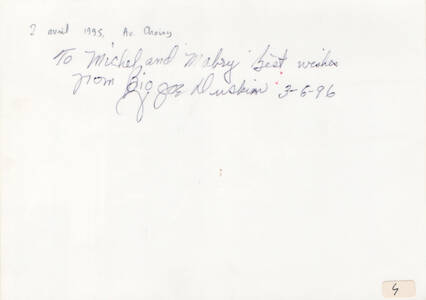 2 avril 1995, Au Chorus
To Michel and Mabry Best wishes
From Big Joe Duskin 3-6-96
4